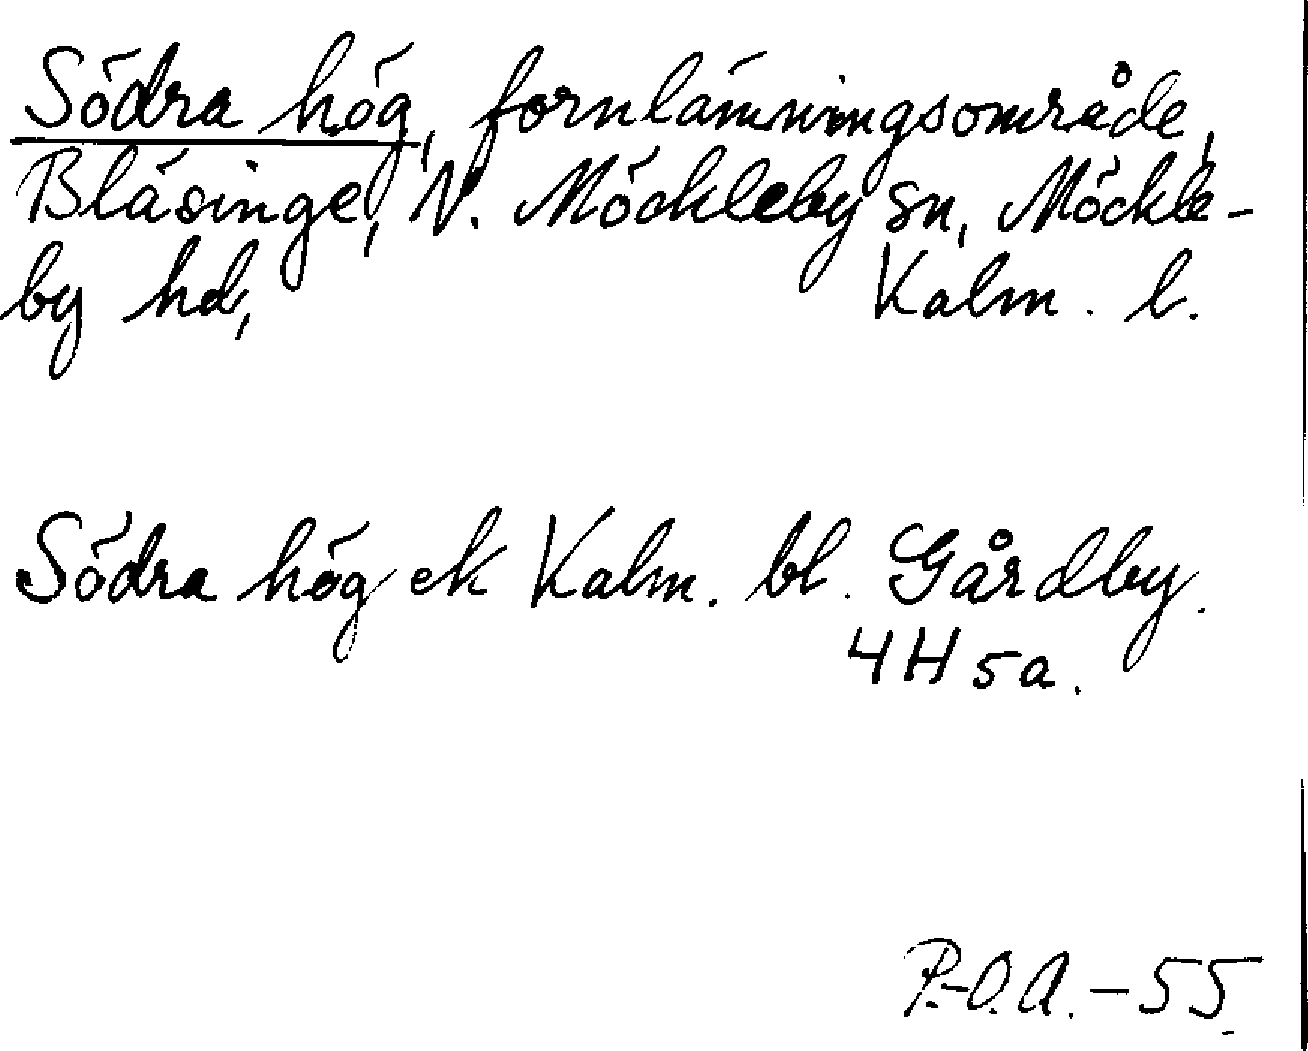 Södra hög, fornlämningsområde,
Bläsinge, N. Möckleby sn, Möckle-
by hd, Kalm. l.
Södra hög ek Kalm. bl. Gårdby.
4H 5a.
P.-O.A. - 55.